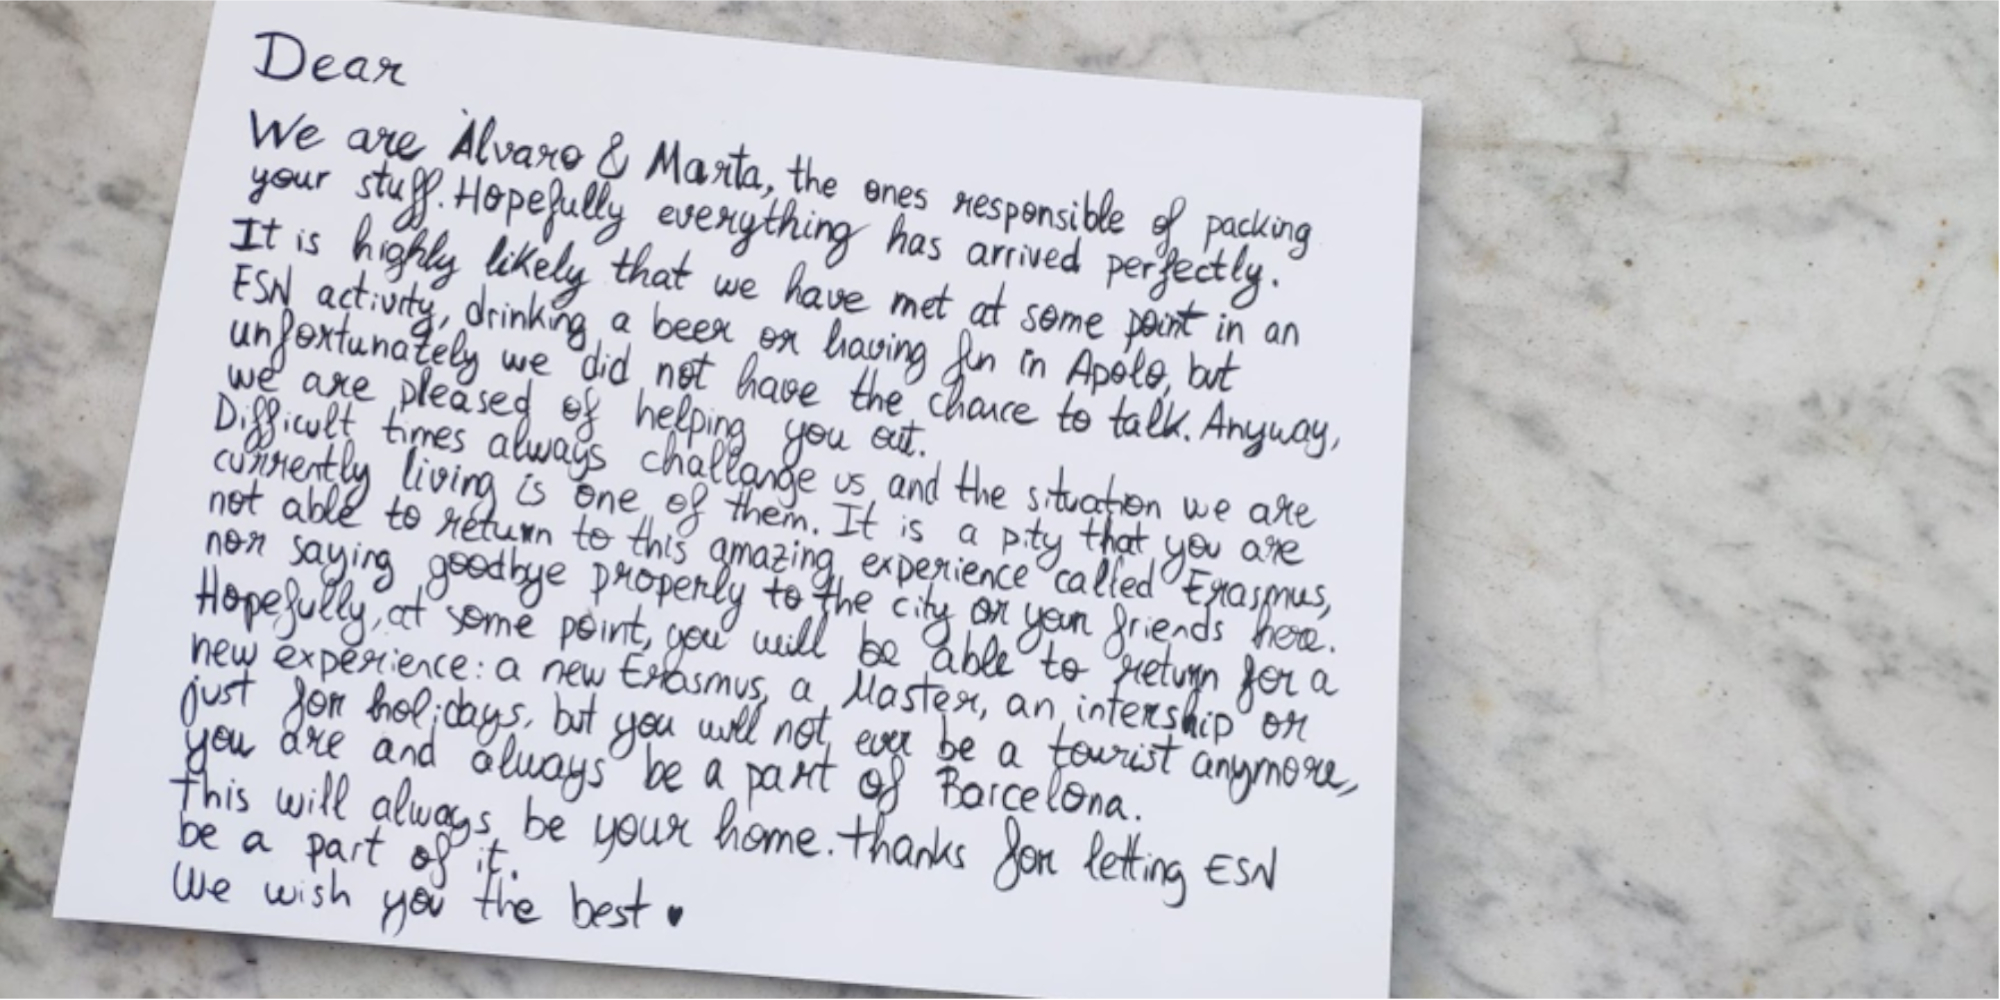 Dear
We are Àlvaro & Marta, the ones responsible of packing
your stuff. Hopefully everything has arrived perfectly.
It is highly likely that we have met at some point in an
ESN activity, drinking a beer or having fun in Apolo, but
unfortunately we did not have the chance to talk. Anyway,
we are pleased of helping you out.
Difficult times always challange us, and the situation we are
currently living is one of them. It is a pity that you are
not able to return to this amazing experience called Erasmus,
nor saying goodbye properly to the city or your friends here.
Hopefully, at some point, you will be able to return for a
new experience: a new Erasmus, a Master, an intership or
just for holidays, but you will not ever be a tourist anymore,
you are and always be a part of Barcelona.
This will always be your home. Thanks for letting ESN
be a part of it.
We wish you the best ♥